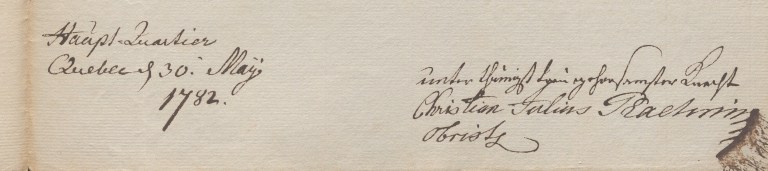 Haupt-Quartier
Quebec d 30. May
1782.
unterthänigst treu gehorsamster Knecht
Christian Julius Praetorius
Obristl